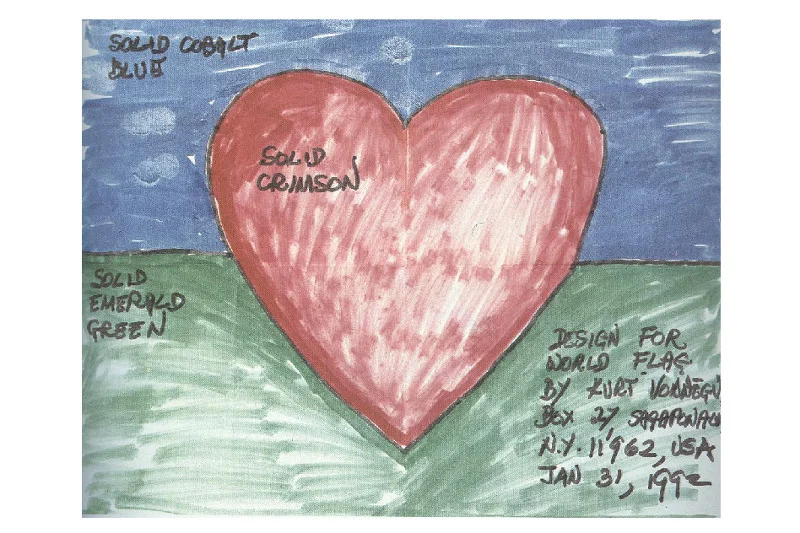 SOLID COBALT
BLUE
SOLID
CRIMSON
SOLID
EMERALD
GREEN
DESIGN FOR
WORLD FLAG
BY KURT VONNEGU
BOX 27, SAGAPONACK
N.Y. 11962, USA
JAN 31, 1992